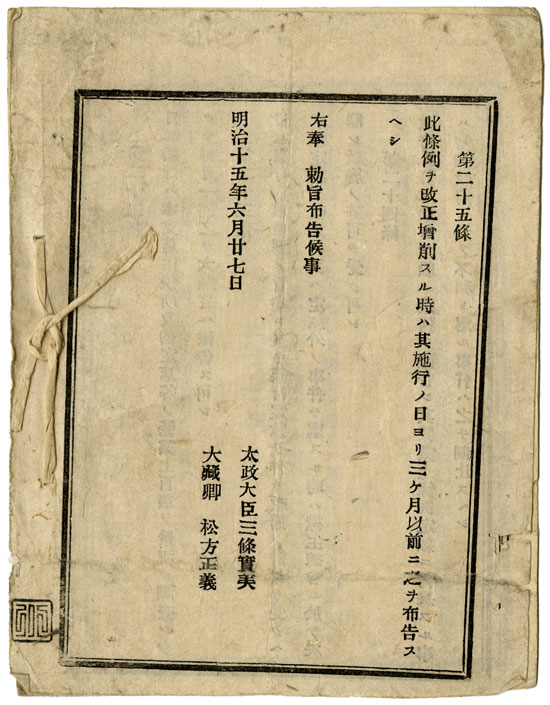 第二十五條
此條例ヲ改正增削スル時ハ其施行ノ日ヨリ三ケ月以前ニ之ヲ布告ス
ヘシ
右奉　勅旨布告候事
明治十五年六月廿七日
太政大臣三條實美
大藏卿　松方正義